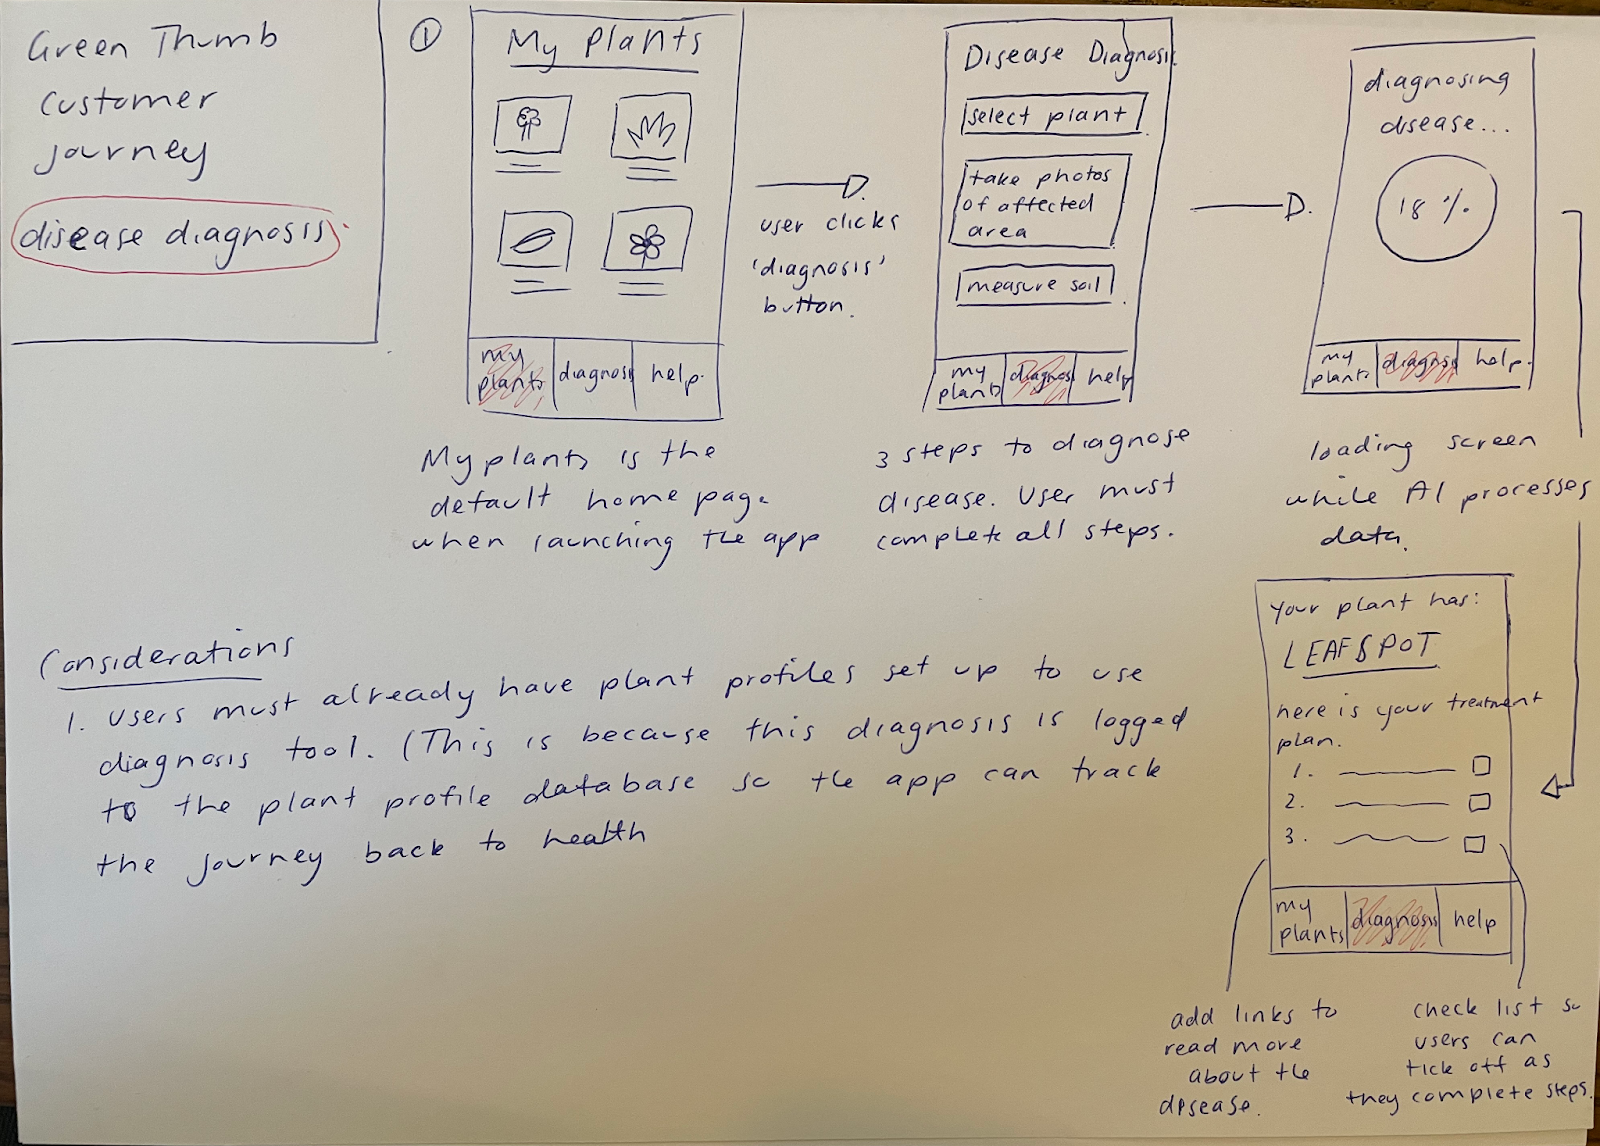 Green Thumb
customer
journey
disease diagnosis
①
My plants
my
plants
diagnosis
help.
My plants is the
default home page
when launching the app
user clicks
'diagnosis'
button.
Disease Diagnosis
select plant
take photos
of affected
area
measure soil
my
plants
diagnosis
help
3 steps to diagnose
disease. User must
complete all steps.
diagnosing
disease...
18 %
my
plants
diagnosis
help.
loading screen
while AI processes
data.
Your plant has:
LEAFSPOT
here is your treatment
plan.
1.
2.
3.
my
plants
diagnosis
help
add links to
read more
about the
disease.
check list so
users can
tick off as
they complete steps.
Considerations
1. users must already have plant profiles set up to use
diagnosis tool. (This is because this diagnosis is logged
to the plant profile database so the app can track
the journey back to health